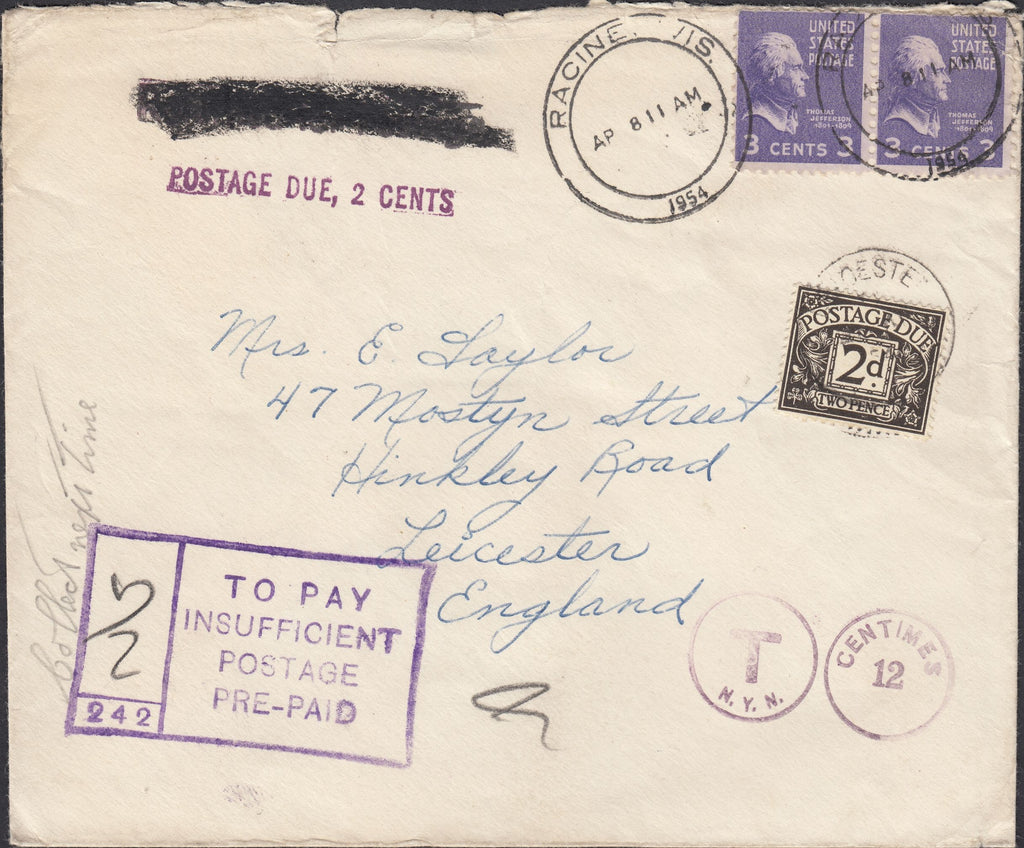 RACINE, WIS.
AP 8 11 AM
1954
UNITED STATES POSTAGE
THOMAS JEFFERSON
1801-1809
3 CENTS 3
UNITED STATES POSTAGE
THOMAS JEFFERSON
1801-1809
3 CENTS 3
AP 8 11 AM
1954
POSTAGE DUE, 2 CENTS
POSTAGE DUE
2d.
TWO PENCE
Mrs. E Taylor
47 Mostyn Street
Hinkley Road
Leicester
England
Collect next time
TO PAY
INSUFFICIENT
POSTAGE
PRE-PAID
242
T
N. Y. N.
CENTIMES
12